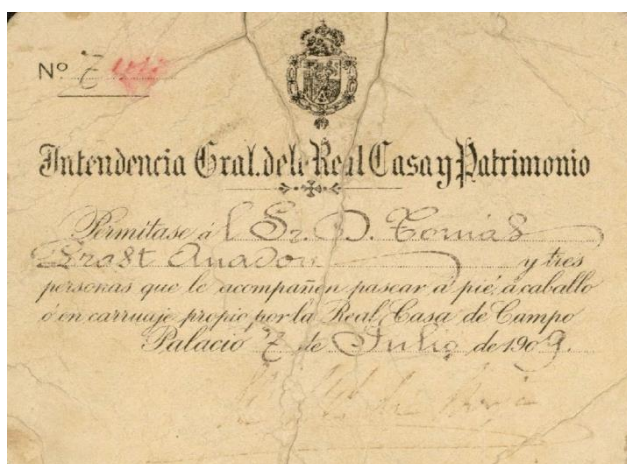 Nº 7
Intendencia Gral. de la Real Casa y Patrimonio
Permitase á l Sr. D. Tomás
y tres
personas que le acompañen pasear á pié, á caballo
ó en carruaje propio por la Real Casa de Campo
Palacio 7 de Julio de 1909.